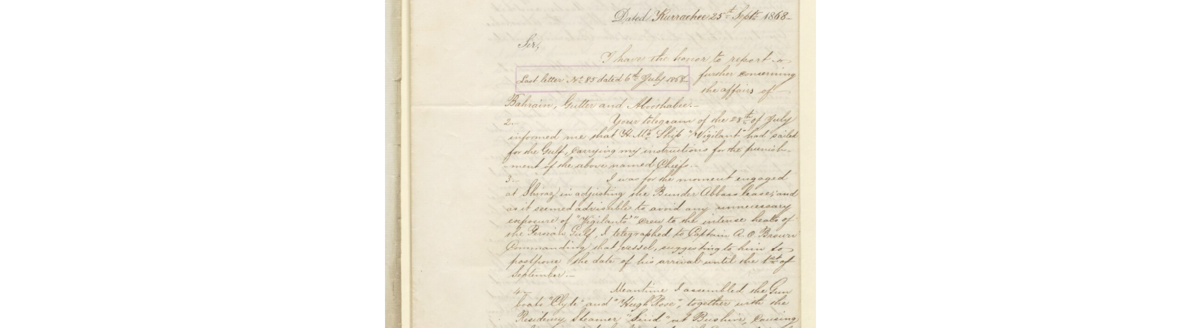 Dated Kurrachee 25th Septr 1868.
Sir,
I have the honor to report
Last letter No. 85 dated 6th July 1868. further concerning
the affairs of
Bahrain, Gutter and Aboothabee.
2. Your telegram of the 28th of July
informed me that H. Ms. Ship "Vigilant" had sailed
for the Gulf carrying my instructions for the punish-
-ment of the above named Chiefs.
3. I was for the moment engaged
at Shiraz in adjusting the Bunder Abbass lease; and
as it seemed advisable to avoid any unnecessary
exposure of "Vigilant's" crew to the intense heats of
the Persian Gulf, I telegraphed to Captain R. A. O. Brown
Commanding that vessel, suggesting to him to
postpone the date of his arrival until the 1st of
September.
4. Meantime I assembled the Gun
boats "Clyde" and "Hugh Rose", together with the
Residency Steamer "Sind" at Bushire, causing